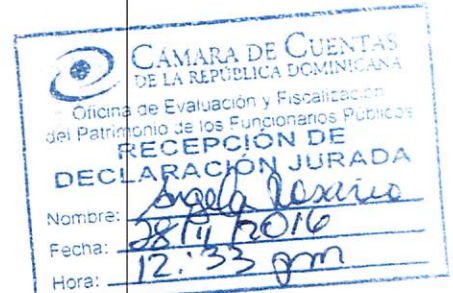 CÁMARA DE CUENTAS
DE LA REPÚBLICA DOMINICANA
Oficina de Evaluación y Fiscalización
del Patrimonio de los Funcionarios Públicos
RECEPCIÓN DE
DECLARACIÓN JURADA
Nombre: Angela Rosario
Fecha: 28/11/2016
Hora: 12:33 pm